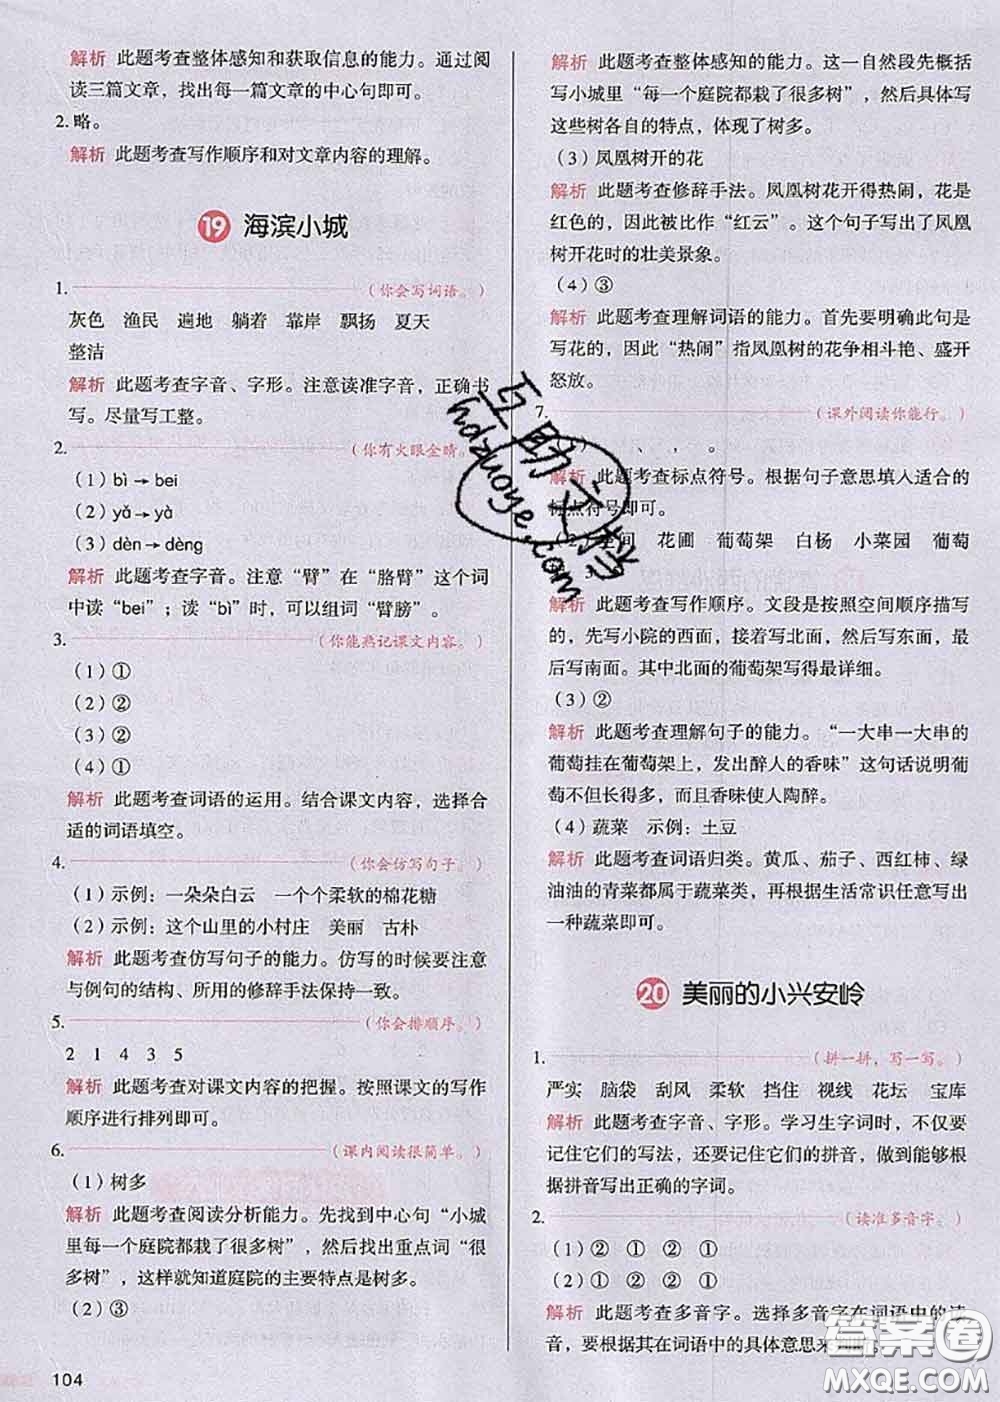 解析 此题考查整体感知和获取信息的能力。通过阅
读三篇文章，找出每一篇文章的中心句即可。
2. 略。
解析 此题考查写作顺序和对文章内容的理解。
19 海滨小城
1. （你会写词语。）
灰色 渔民 遍地 躺着 靠岸 飘扬 夏天
整洁
解析 此题考查字音、字形。注意读准字音，正确书
写。尽量写工整。
2. （你有火眼金睛。）
（1）bì→bei
（2）yǎ→yà
（3）dèn→dèng
解析 此题考查字音。注意“臂”在“胳臂”这个词
中读“bei”；读“bì”时，可以组词“臂膀”。
3. （你能熟记课文内容。）
（1）①
（2）②
（3）②
（4）①
解析 此题考查词语的运用。结合课文内容，选择合
适的词语填空。
4. （你会仿写句子。）
（1）示例：一朵朵白云 一个个柔软的棉花糖
（2）示例：这个山里的小村庄 美丽 古朴
解析 此题考查仿写句子的能力。仿写的时候要注意
与例句的结构、所用的修辞手法保持一致。
5. （你会排顺序。）
2 1 4 3 5
解析 此题考查对课文内容的把握。按照课文的写作
顺序进行排列即可。
6. （课内阅读很简单。）
（1）树多
解析 此题考查阅读分析能力。先找到中心句“小城
里每一个庭院都栽了很多树”，然后找出重点词“很
多树”，这样就知道庭院的主要特点是树多。
（2）③
104
解析 此题考查整体感知的能力。这一自然段先概括
写小城里“每一个庭院都栽了很多树”，然后具体写
这些树各自的特点，体现了树多。
（3）凤凰树开的花
解析 此题考查修辞手法。凤凰树花开得热闹，花是
红色的，因此被比作“红云”。这个句子写出了凤凰
树开花时的壮美景象。
（4）③
解析 此题考查理解词语的能力。首先要明确此句是
写花的，因此“热闹”指凤凰树的花争相斗艳、盛开
怒放。
7. （课外阅读你能行。）
、 ， 。
解析 此题考查标点符号。根据句子意思填入适合的
标点符号即可。
（2）空间 花圃 葡萄架 白杨 小菜园 葡萄
解析 此题考查写作顺序。文段是按照空间顺序描写
的，先写小院的西面，接着写北面，然后写东面，最
后写南面。其中北面的葡萄架写得最详细。
（3）②
解析 此题考查理解句子的能力。“一大串一大串的
葡萄挂在葡萄架上，发出醉人的香味”这句话说明葡
萄不但长得多，而且香味使人陶醉。
（4）蔬菜 示例：土豆
解析 此题考查词语归类。黄瓜、茄子、西红柿、绿
油油的青菜都属于蔬菜类，再根据生活常识任意写出
一种蔬菜即可。
20 美丽的小兴安岭
1. （拼一拼，写一写。）
严实 脑袋 刮风 柔软 挡住 视线 花坛 宝库
解析 此题考查字音、字形。学习生字词时，不仅要
记住它们的写法，还要记住它们的拼音，做到能够根
据拼音写出正确的字词。
2. （读准多音字。）
（1）② ① ② ①
（2）① ② ① ②
解析 此题考查多音字。选择多音字在词语中的读
音，要根据其在词语中的具体意思来判断。
互助文学
hdzuoye.com
答案圈
MXQE.COM